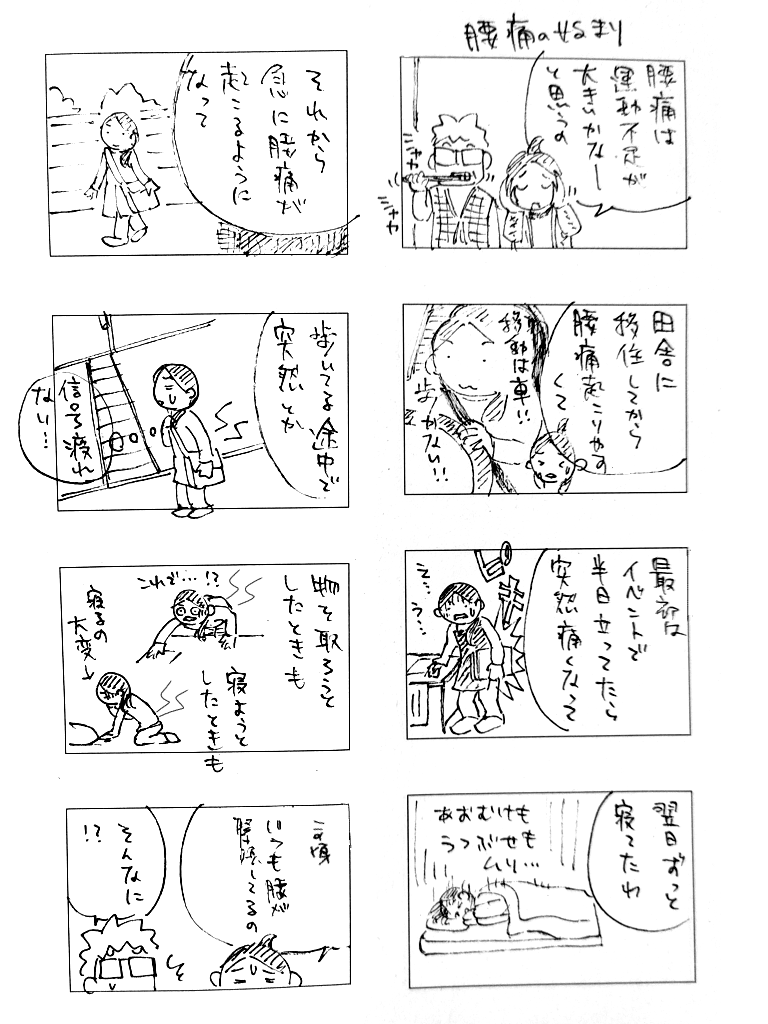 腰痛の始まり
腰痛は
運動不足が
大きいかなー
と思うの
シャカ
シャカ
田舎に
移住してから
腰痛起こりやす
くて
移動は車!!
歩かない!!
最初は
イベントで
半日立ってたら
突然痛くなって
ピキ
え…
う…
翌日ずっと
寝てたわ
あおむけも
うつぶせも
ムリ…
それから
急に腰痛が
起こるように
なって
歩いてる途中で
突然とか
信号渡れ
ない…!
物を取ろうと
したときも
これで…!?
寝ようと
したときも
寝るの
大変
この頃
いつも腰が
緊張してるの
そんなに
!?